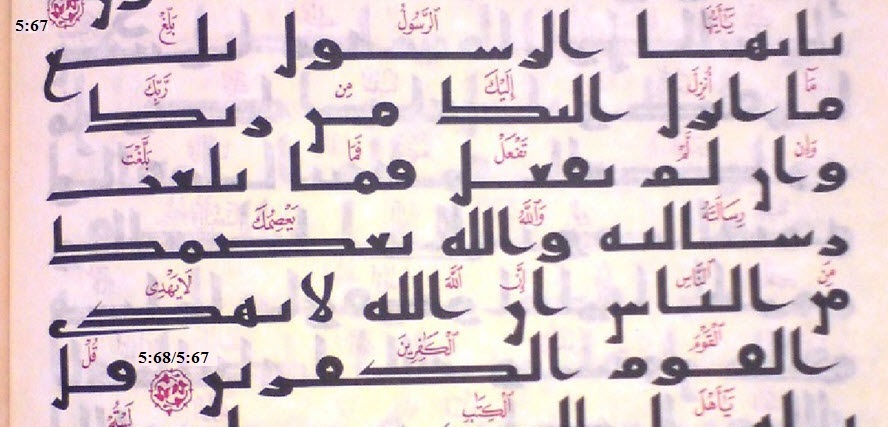 5:67 يَٰٓأَيُّهَا ٱلرَّسُولُ بَلِّغْ
يايها الرسول بلغ
مَآ أُنزِلَ إِلَيْكَ مِن رَّبِّكَ
ما انزل اليك من ربك
وَإِن لَّمْ تَفْعَلْ فَمَا بَلَّغْتَ
وان لم تفعل فما بلغت
رِسَالَتَهُۥ وَٱللَّهُ يَعْصِمُكَ
رسالته والله يعصمك
مِنَ ٱلنَّاسِ إِنَّ ٱللَّهَ لَا يَهْدِى
من الناس ان الله لا يهدى
ٱلْقَوْمَ ٱلْكَٰفِرِينَ 5:68/5:67 قُلْ
القوم الكفرين قل
يَٰٓأَهْلَ ٱلْكِتَٰبِ لَسْتُمْ